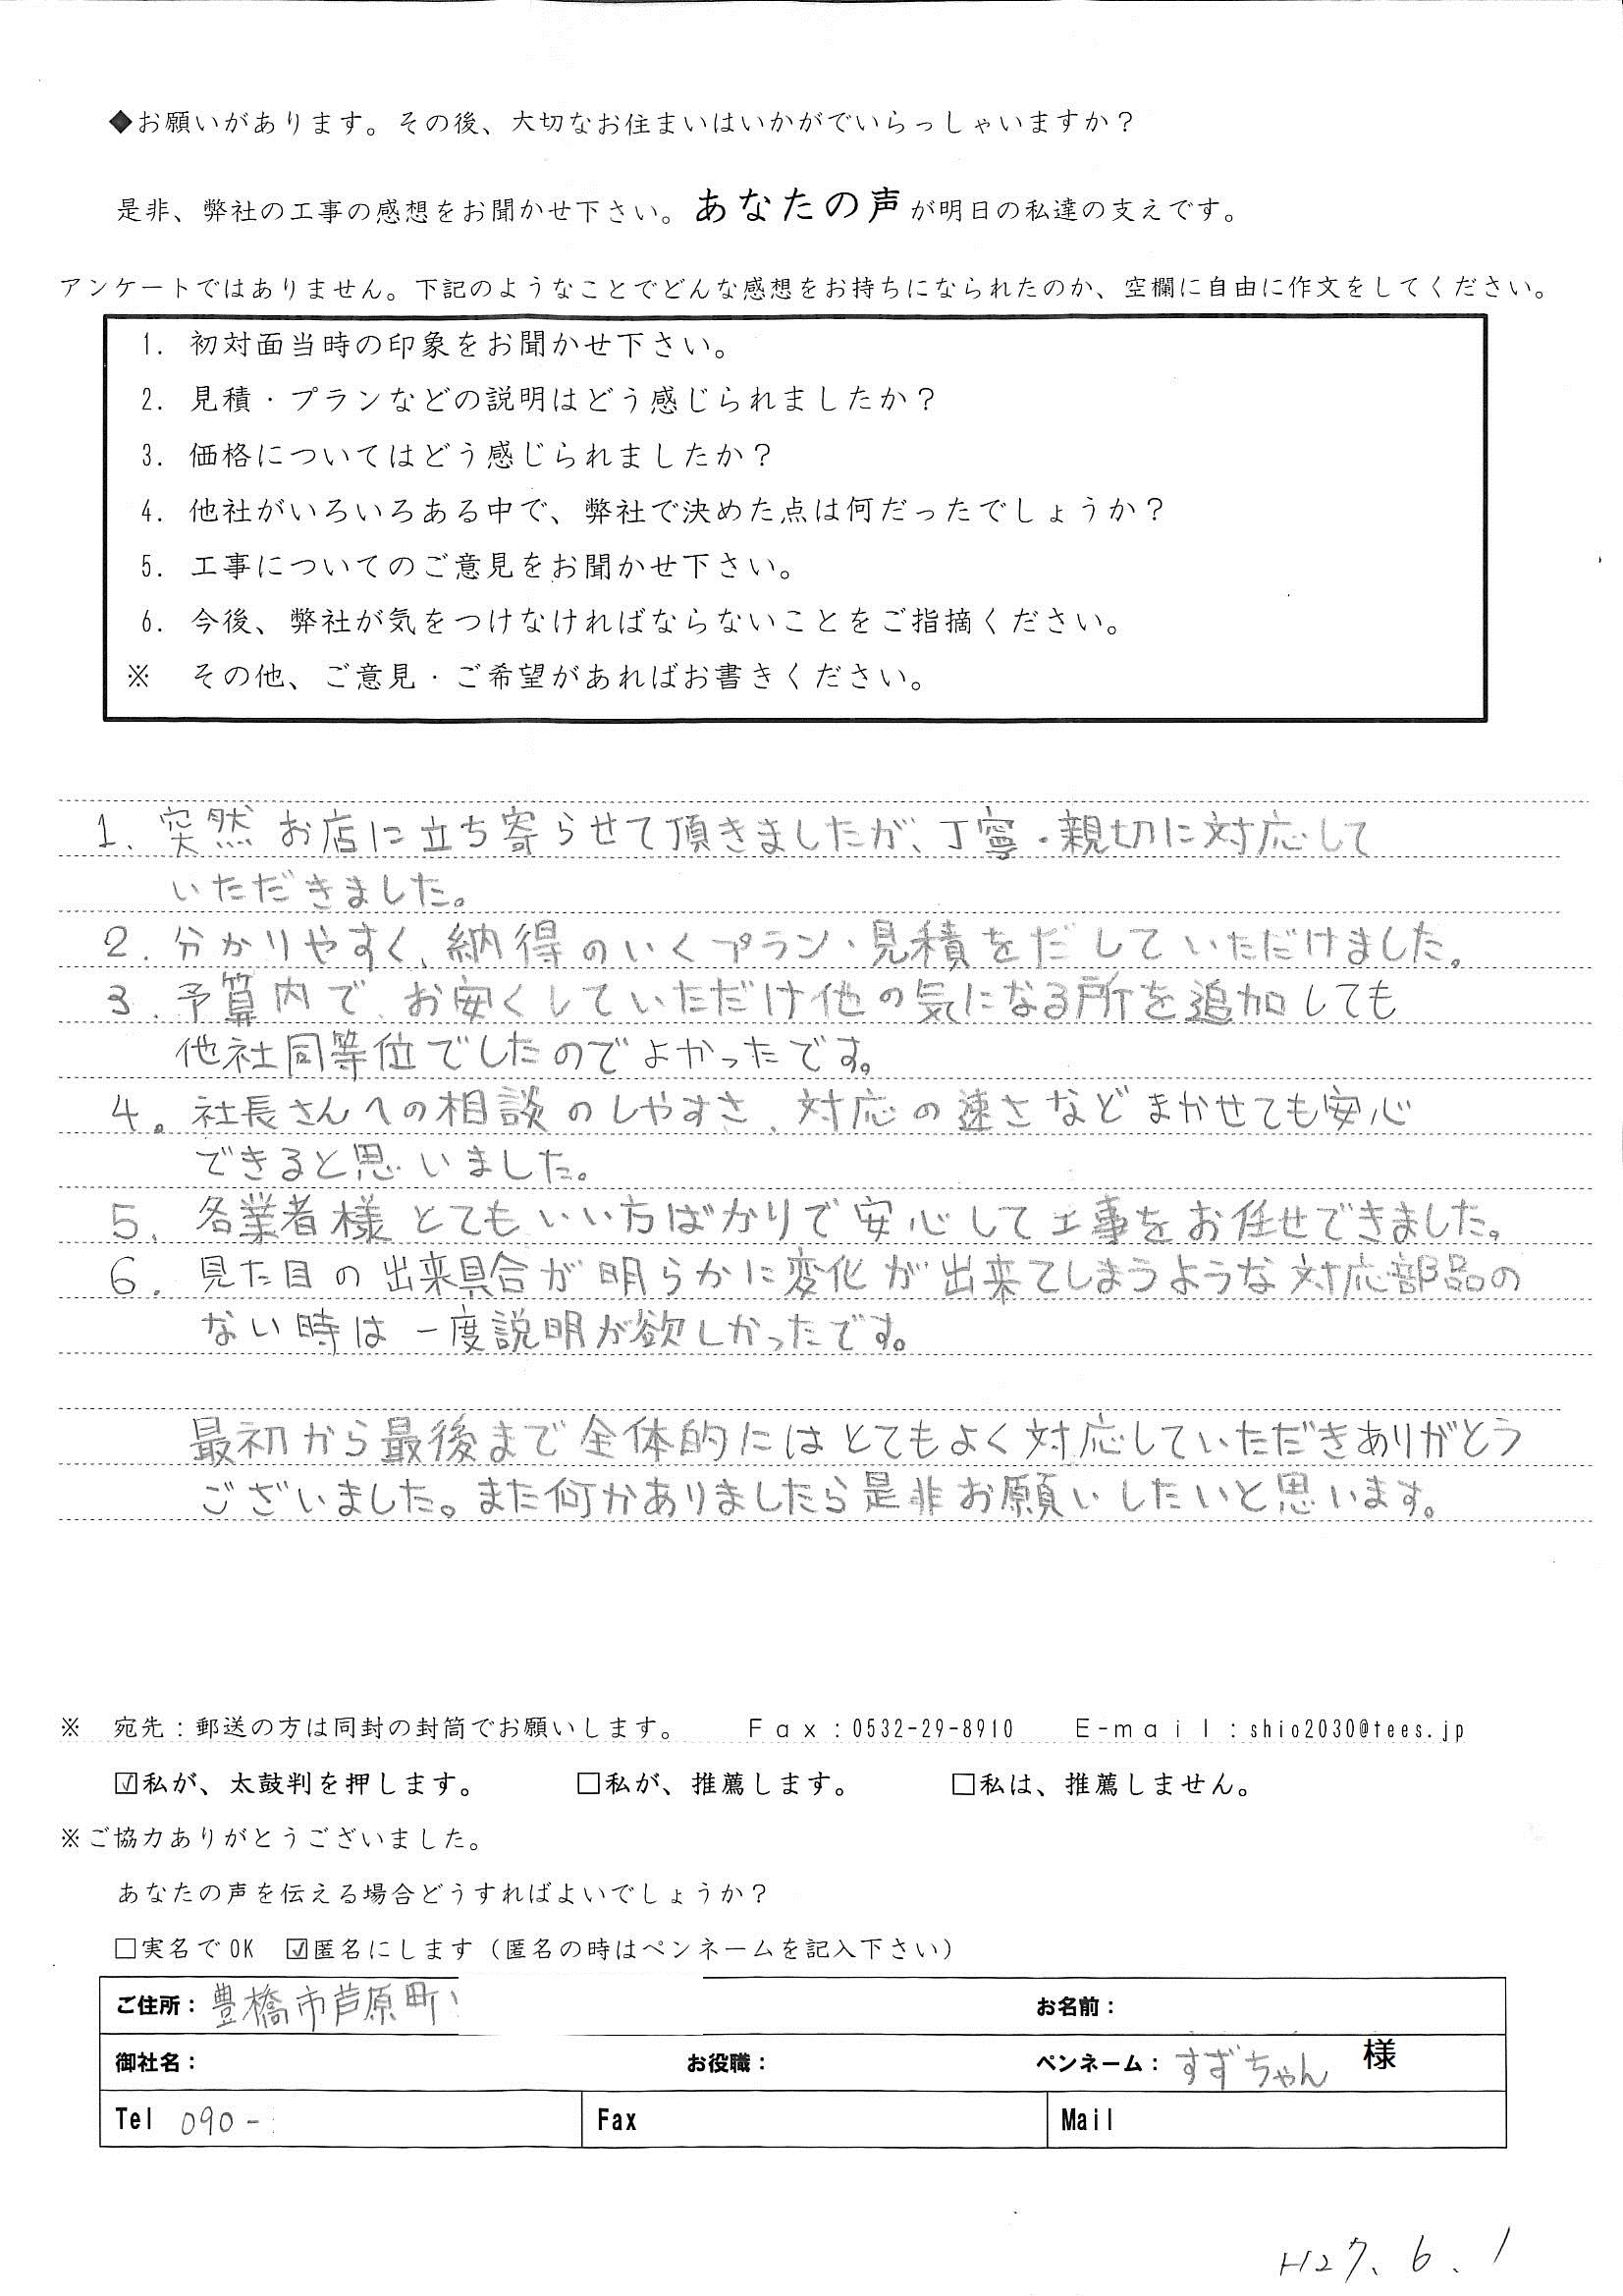 ◆お願いがあります。その後、大切なお住まいはいかがでいらっしゃいますか？
是非、弊社の工事の感想をお聞かせ下さい。あなたの声が明日の私達の支えです。
アンケートではありません。下記のようなことでどんな感想をお持ちになられたのか、空欄に自由に作文をしてください。
1. 初対面当時の印象をお聞かせ下さい。
2. 見積・プランなどの説明はどう感じられましたか？
3. 価格についてはどう感じられましたか？
4. 他社がいろいろある中で、弊社で決めた点は何だったでしょうか？
5. 工事についてのご意見をお聞かせ下さい。
6. 今後、弊社が気をつけなければならないことをご指摘ください。
※ その他、ご意見・ご希望があればお書きください。
1. 突然お店に立ち寄らせて頂きましたが、丁寧・親切に対応して
いただきました。
2. 分かりやすく、納得のいくプラン・見積をだしていただけました。
3. 予算内で、お安くしていただけ他の気になる所を追加しても
他社同等位でしたのでよかったです。
4. 社長さんへの相談のしやすさ、対応の速さなどまかせても安心
できると思いました。
5. 各業者様とてもいい方ばかりで安心して工事をお任せできました。
6. 見た目の出来具合が明らかに変化が出来てしまうような対応部品の
ない時は一度説明が欲しかったです。
最初から最後まで全体的にはとてもよく対応していただきありがとう
ございました。また何かありましたら是非お願いしたいと思います。
※ 宛先：郵送の方は同封の封筒でお願いします。 Fax：0532-29-8910 E-mail：shio2030@tees.jp
☑私が、太鼓判を押します。 □私が、推薦します。 □私は、推薦しません。
※ご協力ありがとうございました。
あなたの声を伝える場合どうすればよいでしょうか？
□実名でOK ☑匿名にします（匿名の時はペンネームを記入下さい）
ご住所：豊橋市芦原町 お名前：
御社名： お役職： ペンネーム：すずちゃん 様
Tel 090- Fax Mail
H27. 6. 1